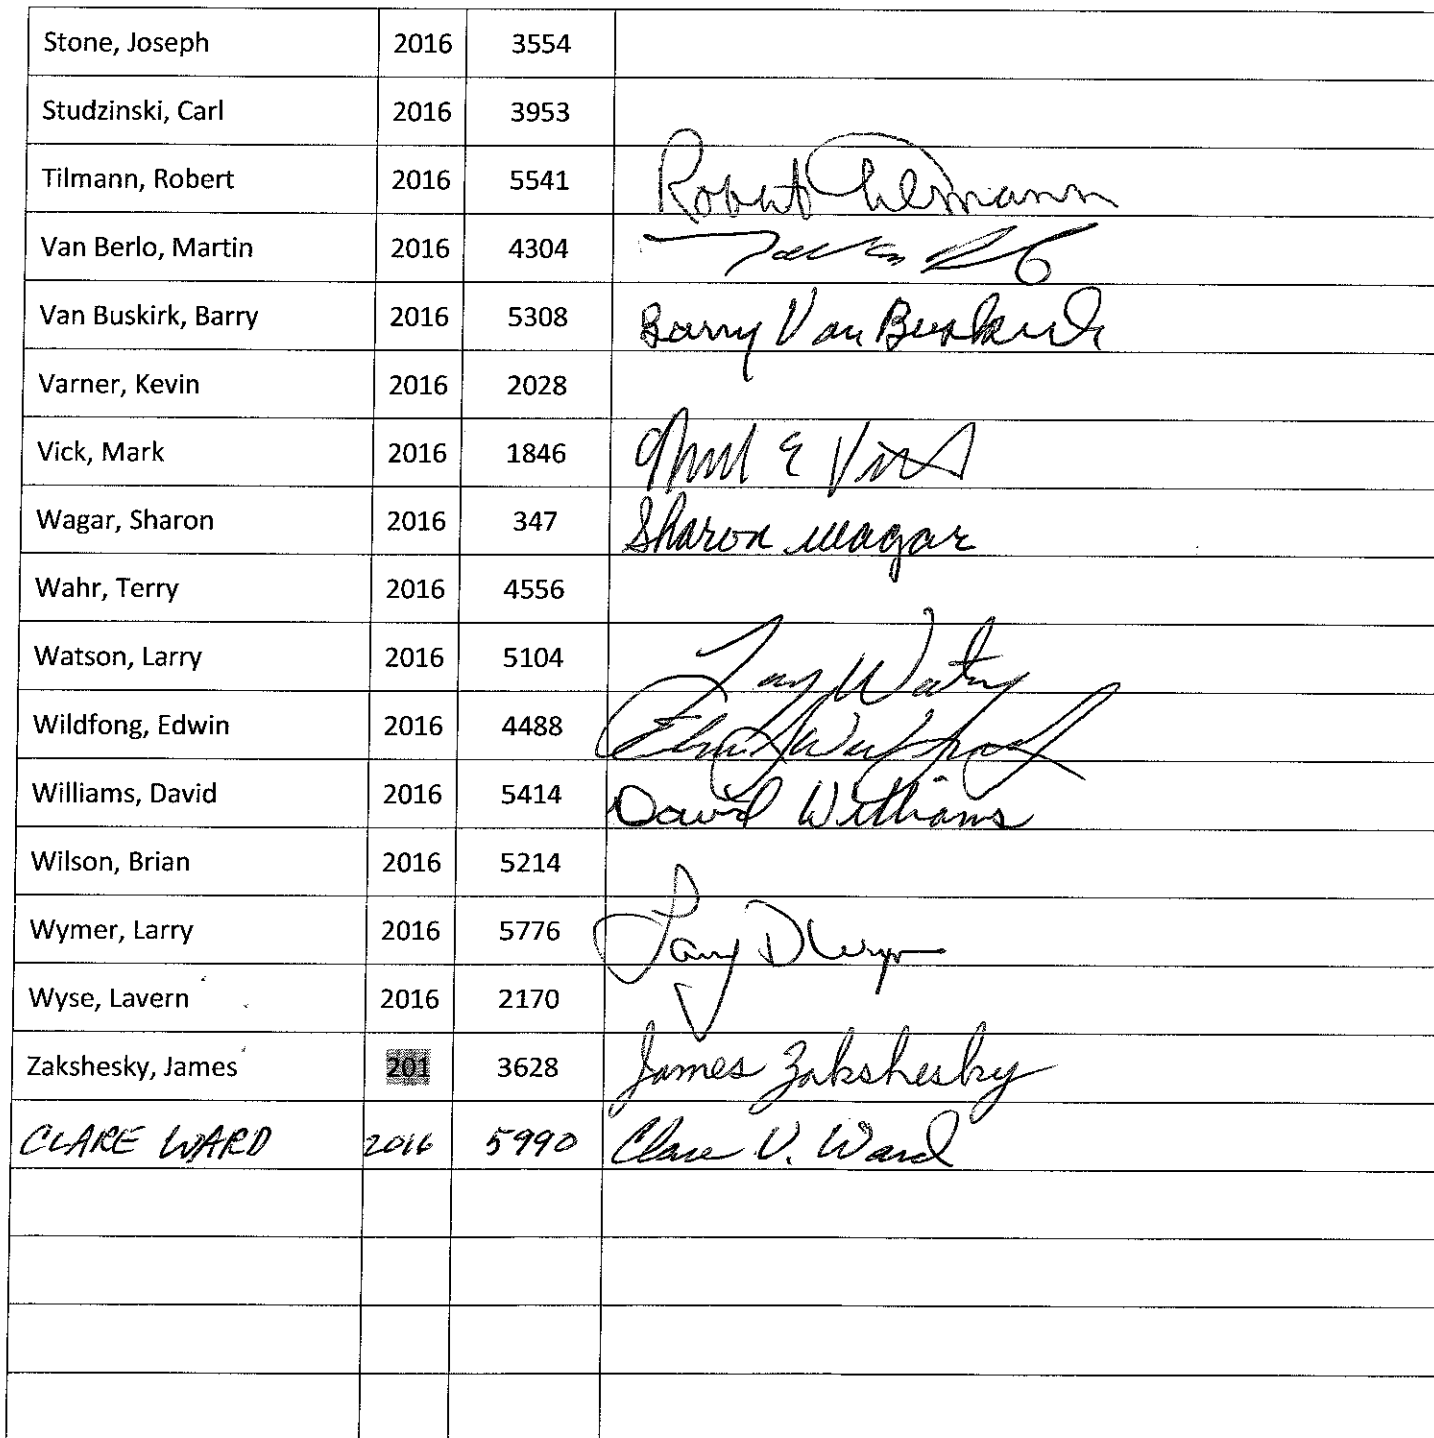 Stone, Joseph 2016 3554
Studzinski, Carl 2016 3953
Tilmann, Robert 2016 5541 Robert Tilmann
Van Berlo, Martin 2016 4304
Van Buskirk, Barry 2016 5308 Barry Van Buskirk
Varner, Kevin 2016 2028
Vick, Mark 2016 1846 Mark E Vick
Wagar, Sharon 2016 347 Sharon Wagar
Wahr, Terry 2016 4556
Watson, Larry 2016 5104
Wildfong, Edwin 2016 4488
Williams, David 2016 5414 David Williams
Wilson, Brian 2016 5214
Wymer, Larry 2016 5776 Larry D
Wyse, Lavern 2016 2170
Zakshesky, James 201 3628 James Zakshesky
CLARE WARD 2016 5990 Clare V. Ward